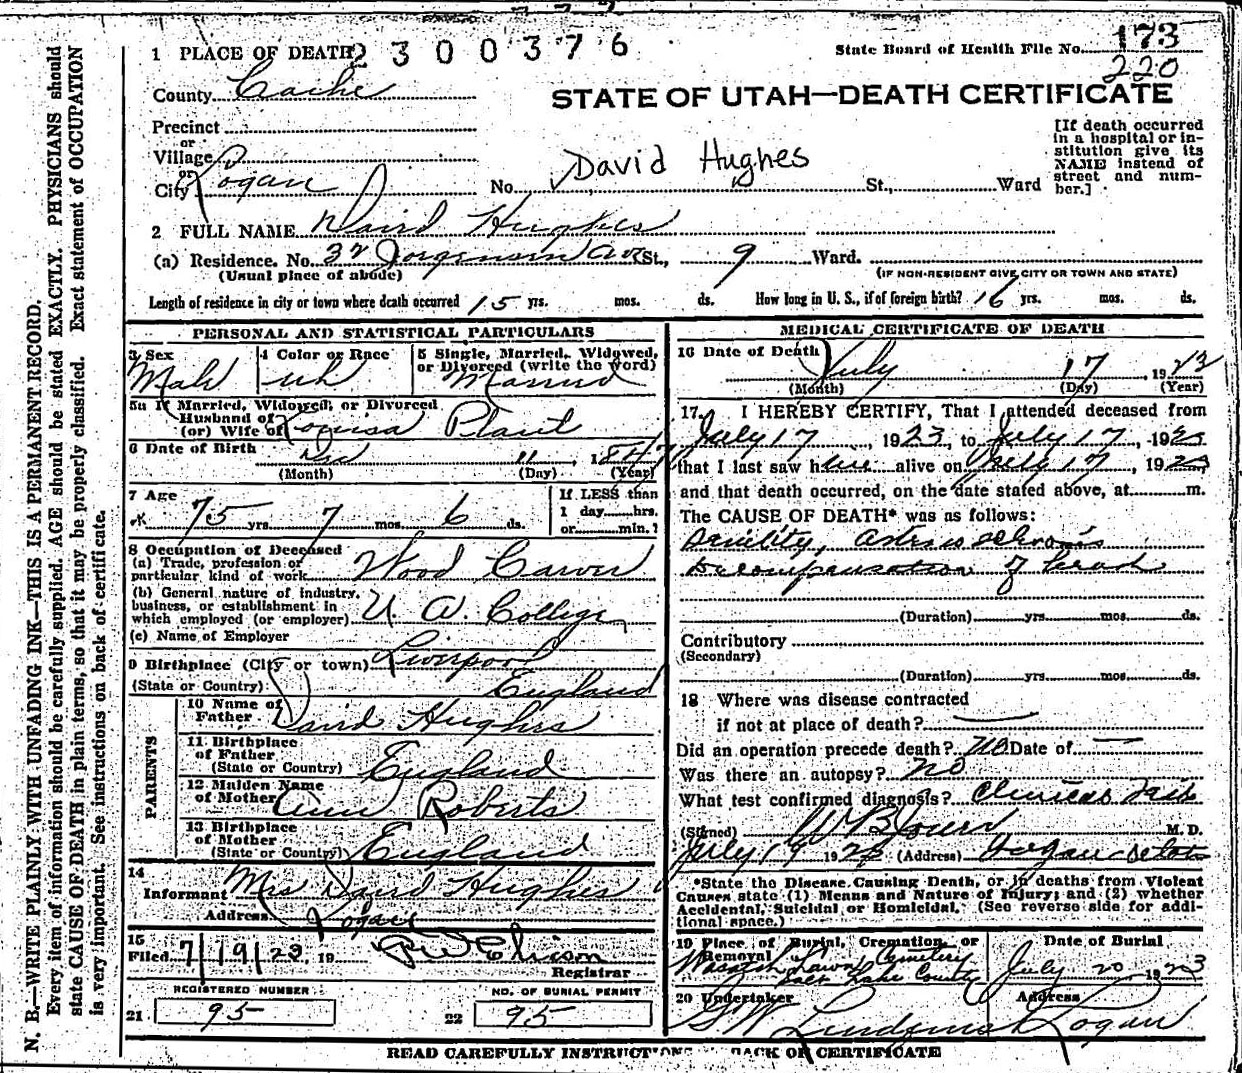 N. B.—WRITE PLAINLY WITH UNFADING INK—THIS IS A PERMANENT RECORD.
Every item of information should be carefully supplied. AGE should be stated EXACTLY. PHYSICIANS should
state CAUSE OF DEATH in plain terms, so that it may be properly classified. Exact statement of OCCUPATION
is very important. See instructions on back of certificate.
1 PLACE OF DEATH
2300376
State Board of Health File No. 173
220
County Cache
STATE OF UTAH—DEATH CERTIFICATE
Precinct
or
Village
or
City Logan
No. St., Ward
David Hughes
[If death occurred
in a hospital or in-
stitution give its
NAME instead of
street and num-
ber.]
2 FULL NAME David Hughes
(a) Residence. No. 32 Jorgensen Ave St., 9 Ward.
(Usual place of abode)
(IF NON-RESIDENT GIVE CITY OR TOWN AND STATE)
Length of residence in city or town where death occurred 15 yrs. mos. ds. How long in U. S., if of foreign birth? 16 yrs. mos. ds.
PERSONAL AND STATISTICAL PARTICULARS
3 Sex
Male
4 Color or Race
wh
5 Single, Married, Widowed,
or Divorced (write the word)
Married
5a If Married, Widowed, or Divorced
Husband of
(or) Wife of Louisa Plant
6 Date of Birth Dec 11, 1847
(Month) (Day) (Year)
7 Age
75 yrs. 7 mos. 6 ds.
If LESS than
1 day hrs.
or min.?
8 Occupation of Deceased
(a) Trade, profession or
particular kind of work Wood Carver
(b) General nature of industry,
business, or establishment in
which employed (or employer) U. A. College
(c) Name of Employer
9 Birthplace (City or town) Liverpool
(State or Country) England
PARENTS
10 Name of
Father David Hughes
11 Birthplace
of Father
(State or Country) England
12 Maiden Name
of Mother Ann Roberts
13 Birthplace
of Mother
(State or Country) England
14
Informant Mrs David Hughes
Address Logan
15
Filed 7/19/23 19
Registrar
REGISTERED NUMBER
21 95
NO. OF BURIAL PERMIT
22 95
MEDICAL CERTIFICATE OF DEATH
16 Date of Death
July 17, 19
(Month) (Day) (Year)
17. I HEREBY CERTIFY, That I attended deceased from
July 17 1923, to July 17, 1923
that I last saw him alive on July 17, 1923
and that death occurred, on the date stated above, at m.
The CAUSE OF DEATH* was as follows:
Senility,
Decompensation of heart
(Duration) yrs. mos. ds.
Contributory
(Secondary)
(Duration) yrs. mos. ds.
18 Where was disease contracted
if not at place of death? —
Did an operation precede death? no Date of —
Was there an autopsy? no
What test confirmed diagnosis? Clinical
(Signed) M. D.
July 19 1923 (Address) Logan
*State the Disease Causing Death, or in deaths from Violent
Causes state (1) Means and Nature of Injury; and (2) whether
Accidental, Suicidal or Homicidal. (See reverse side for addi-
tional space.)
19 Place of Burial, Cremation, or
Removal
Wasatch Lawn Cemetery
Salt Lake County
Date of Burial
July 20 1923
20 Undertaker
G W Lindquist
Address
Logan
READ CAREFULLY INSTRUCTIONS BACK OF CERTIFICATE